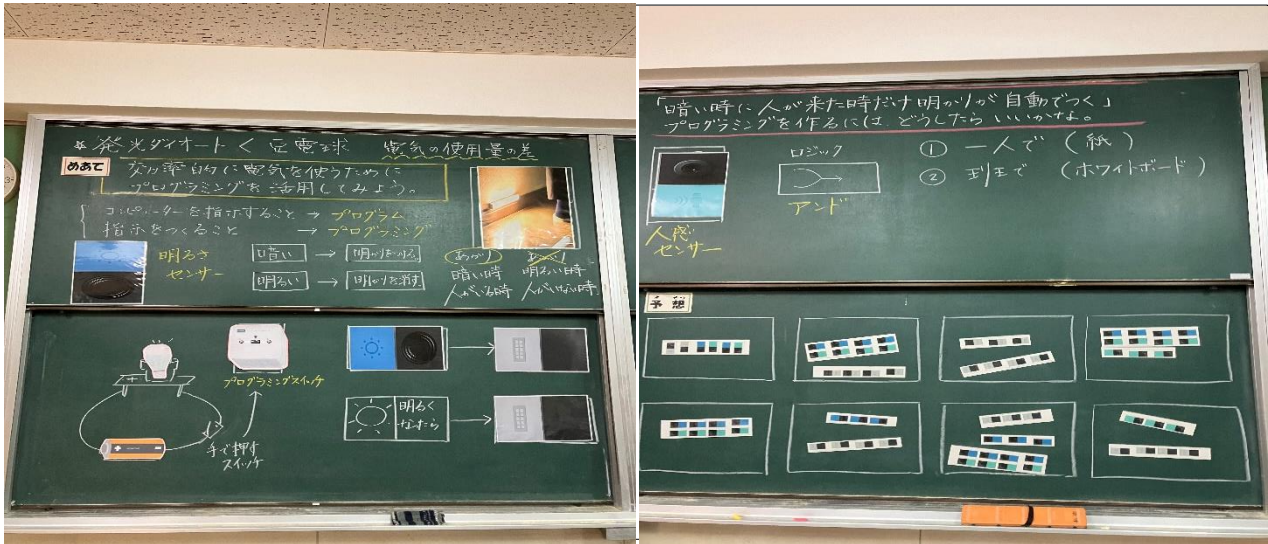 *発光ダイオード<豆電球 電気の使用量の差
めあて
効率的に電気を使うために
プログラミングを活用してみよう。
コンピューターを指示すること → プログラム
指示をつくること → プログラミング
明るさ
センサー
暗い → 明かりをつける
明るい → 明かりを消す
あかり あかり
暗い時 明るい時
人がいる時 人がいない時
プログラミングスイッチ
手で押す
スイッチ
明るく
なったら
「暗い時に人が来た時だけ明かりが自動でつく」
プログラミングを作るには、どうしたらいいかな。
人感
センサー
ロジック
アンド
① 一人で (紙)
② 班で (ホワイトボード)
予想